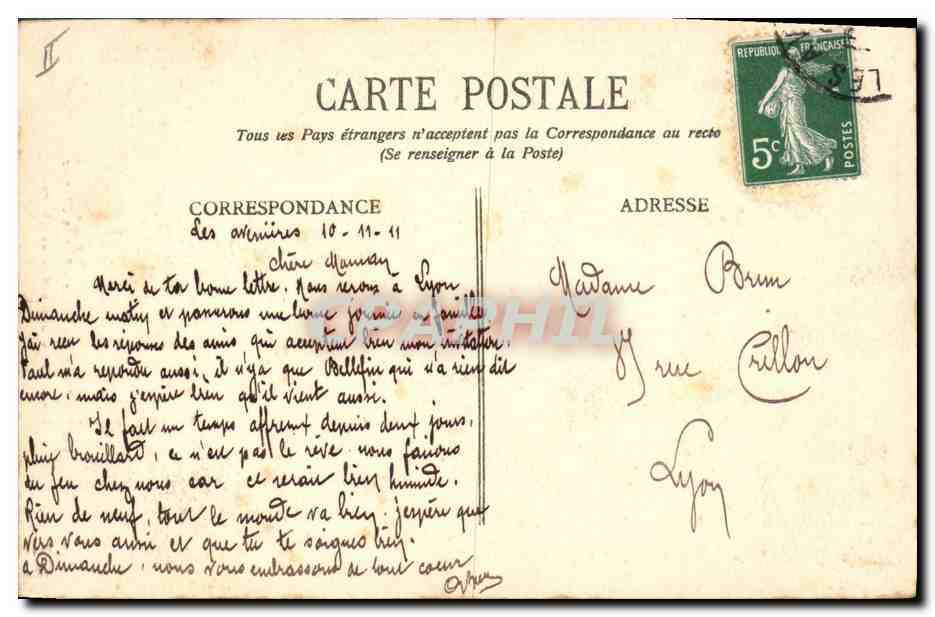 II
CARTE POSTALE
Tous les Pays étrangers n'acceptent pas la Correspondance au recto
(Se renseigner à la Poste)
REPUBLIQUE FRANÇAISE
5c
POSTES
LES
CORRESPONDANCE
Les avenières 10-11-11
chère Maman
Merci de ta bonne lettre. Nous serons à Lyon
Dimanche matin et passerons une bonne journée en famille.
J'ai reçu les réponses des amis qui acceptent bien mon invitation.
Paul m'a répondu aussi, il n'y a que Bellefin qui n'a rien dit
encore, mais j'espère bien qu'il vient aussi.
Il fait un temps affreux depuis deux jours,
pluie, brouillard, ce n'est pas le rêve. nous faisons
du feu chez nous car ce serait bien humide.
Rien de neuf, tout le monde va bien. j'espère que
vers vous aussi et que tu te soignes bien.
à Dimanche, nous vous embrassons de tout coeur
ADRESSE
Madame Brun
rue Crillon
Lyon
CPAPHIL